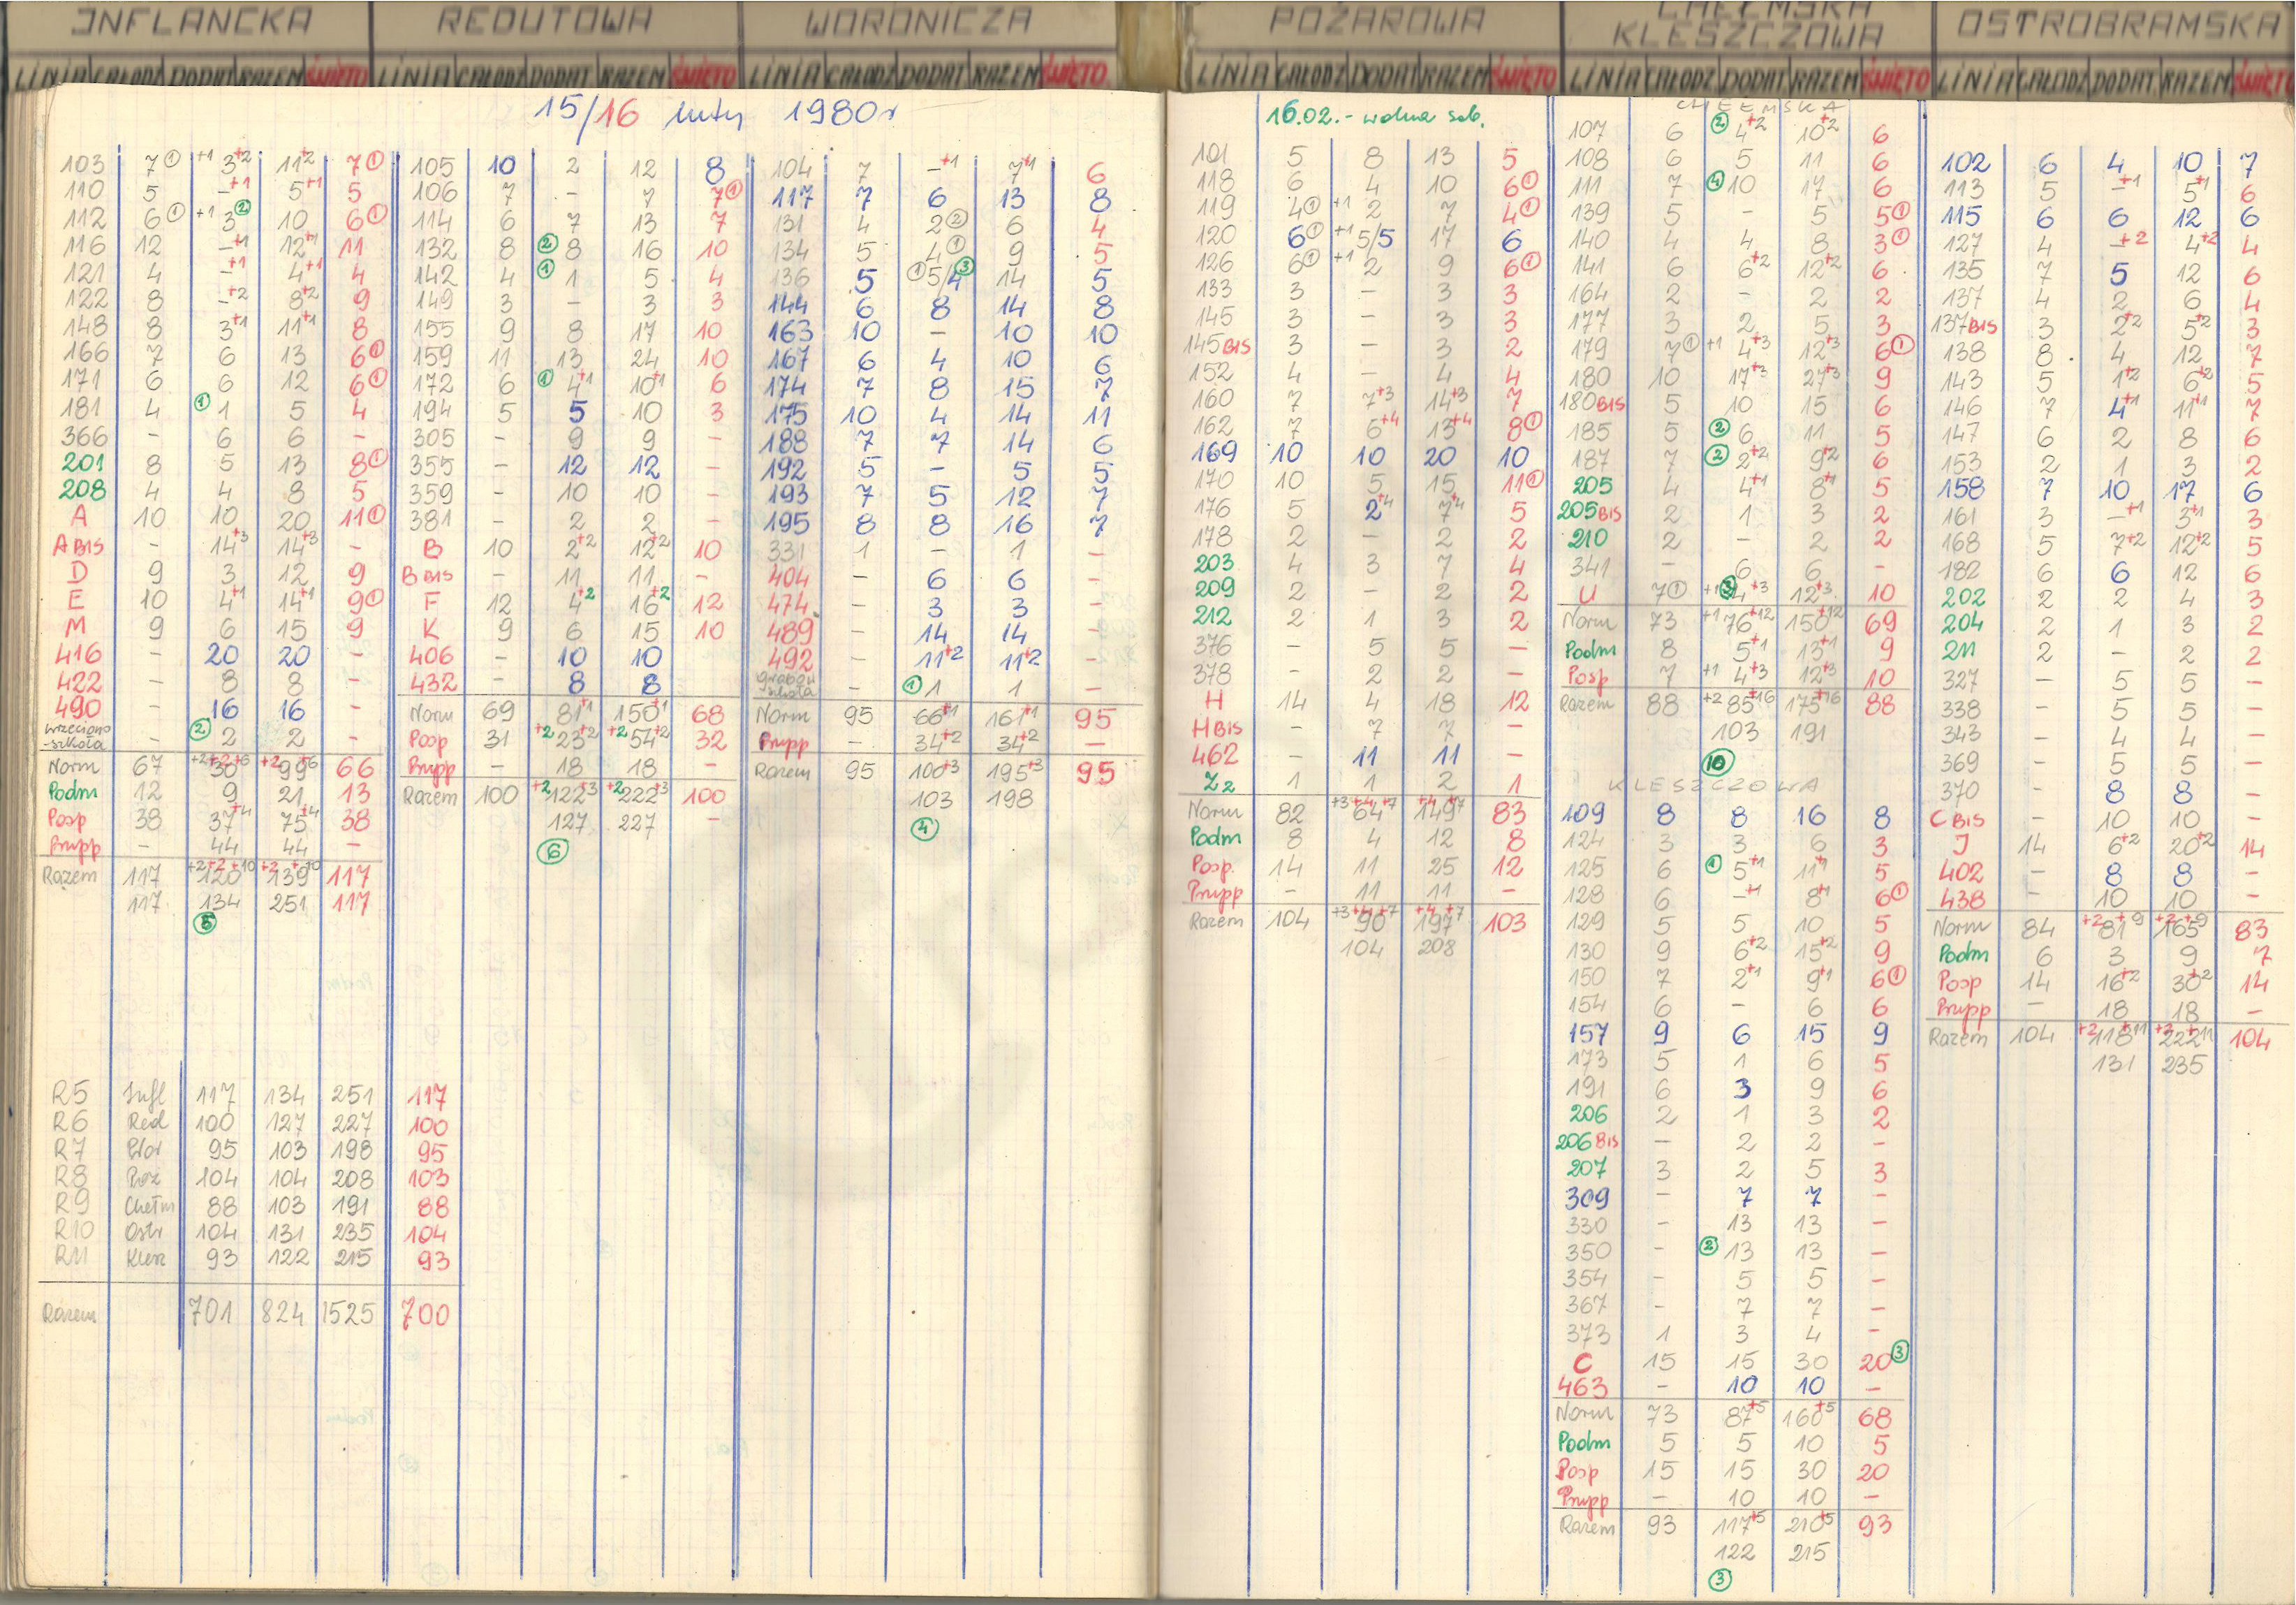 INFLANCKA
LINIA CAŁODZ DODAT RAZEM ŚWIĘTO
15/16 luty 1980r
103 7① +1 3+2 11+2 7①
110 5 -+1 5+1 5
112 6① +1 3② 10 6①
116 12 -+1 12+1 11
121 4 -+1 4+1 4
122 8 -+2 8+2 9
148 8 3+1 11+1 8
166 7 6 13 6①
171 6 6 12 6①
181 4 ① 1 5 4
366 - 6 6 -
201 8 5 13 8①
208 4 4 8 5
A 10 10 20 11①
A BIS - 14+3 14+3 -
D 9 3 12 9
E 10 4+1 14+1 9①
M 9 6 15 9
416 - 20 20 -
422 - 8 8 -
490 - 16 16 -
Wrzeciono
-szkoła - ② 2 2 -
Norm 67 +2+2 30+6 +2 99+6 66
Podm 12 9 21 13
Posp 38 37+4 75+4 38
Prupp - 44 44 -
Razem 117 +2+2 120+10 +2 139+10 117
117 134 251 117
⑤
R5 Infl 117 134 251 117
R6 Red 100 127 227 100
R7 Wor 95 103 198 95
R8 Poż 104 104 208 103
R9 Chełm 88 103 191 88
R10 Ostr 104 131 235 104
R11 Klesz 93 122 215 93
Razem 701 824 1525 700
REDUTOWA
LINIA CAŁODZ DODAT RAZEM ŚWIĘTO
105 10 2 12 8
106 7 - 7 7①
114 6 7 13 7
132 8 ② 8 16 10
142 4 ① 1 5 4
149 3 - 3 3
155 9 8 17 10
159 11 13 24 10
172 6 ① 4+1 10+1 6
194 5 5 10 3
305 - 9 9 -
355 - 12 12 -
359 - 10 10 -
381 - 2 2 -
B 10 2+2 12+2 10
B BIS - 11 11 -
F 12 4+2 16+2 12
K 9 6 15 10
406 - 10 10
432 - 8 8
Norm 69 81+1 150+1 68
Posp 31 +2 23+2 +2 54+2 32
Prupp - 18 18 -
Razem 100 +2 122+3 +2 222+3 100
127 227 -
⑥
WORONICZA
LINIA CAŁODZ DODAT RAZEM ŚWIĘTO
104 7 -+1 7+1 6
117 7 6 13 8
131 4 2② 6 4
134 5 4① 9 5
136 5 ① 5/4③ 14 5
144 6 8 14 8
163 10 - 10 10
167 6 4 10 6
174 7 8 15 7
175 10 4 14 11
188 7 7 14 6
192 5 - 5 5
193 7 5 12 7
195 8 8 16 7
331 1 - 1 -
404 - 6 6 -
474 - 3 3 -
489 - 14 14 -
492 - 11+2 11+2 -
szkoła - ① 1 1 -
Norm 95 66+1 161+1 95
Prupp - 34+2 34+2 -
Razem 95 100+3 195+3 95
103 198
④
POŻAROWA
LINIA CAŁODZ DODAT RAZEM ŚWIĘTO
16.02.- wolna sob.
101 5 8 13 5
118 6 4 10 6①
119 4① +1 2 7 4①
120 6① +1 5/5 17 6
126 6① +1 2 9 6①
133 3 - 3 3
145 3 - 3 3
145 BIS 3 - 3 2
152 4 - 4 4
160 7 7+3 14+3 7
162 7 6+4 13+4 8①
169 10 10 20 10
170 10 5 15 11①
176 5 2+4 7+4 5
178 2 - 2 2
203 4 3 7 4
209 2 - 2 2
212 2 1 3 2
376 - 5 5 -
378 - 2 2 -
H 14 4 18 12
H BIS - 7 7 -
462 - 11 11 -
Z2 1 1 2 1
Norm 82 +3+4 64+7 +4 149+7 83
Podm 8 4 12 8
Posp. 14 11 25 12
Prupp - 11 11 -
Razem 104 +3+4 90+7 +4 197+7 103
104 208
CHEŁMSKA
KLESZCZOWA
LINIA CAŁODZ DODAT RAZEM ŚWIĘTO
CHEŁMSKA
107 6 ② 4+2 10+2 6
108 6 5 11 6
111 7 ④ 10 17 6
139 5 - 5 5①
140 4 4 8 3①
141 6 6+2 12+2 6
164 2 - 2 2
177 3 2 5 3
179 7① +1 4+3 12+3 6①
180 10 17+3 27+3 9
180 BIS 5 10 15 6
185 5 ② 6 11 5
187 7 ② 2+2 9+2 6
205 4 4+1 8+1 5
205 BIS 2 1 3 2
210 2 - 2 2
341 - 6 6 -
U 7① +1 ③ 4+3 12+3 10
Norm 73 +1 76+12 150+12 69
Podm 8 5+1 13+1 9
Posp 7 +1 4+3 12+3 10
Razem 88 +2 85+16 175+16 88
103 191
⑩
KLESZCZOWA
109 8 8 16 8
124 3 3 6 3
125 6 ① 5+1 11+1 5
128 6 -+1 8+1 6①
129 5 5 10 5
130 9 6+2 15+2 9
150 7 2+1 9+1 6①
154 6 - 6 6
157 9 6 15 9
173 5 1 6 5
191 6 3 9 6
206 2 1 3 2
206 BIS - 2 2 -
207 3 2 5 3
309 - 7 7 -
330 - 13 13 -
350 - ② 13 13 -
354 - 5 5 -
367 - 7 7 -
373 1 3 4 -
C 15 15 30 20③
463 - 10 10 -
Norm 73 87+5 160+5 68
Podm 5 5 10 5
Posp 15 15 30 20
Prupp - 10 10 -
Razem 93 117+5 210+5 93
122 215
③
OSTROBRAMSKA
LINIA CAŁODZ DODAT RAZEM ŚWIĘTO
102 6 4 10 7
113 5 -+1 5+1 6
115 6 6 12 6
127 4 -+2 4+2 4
135 7 5 12 6
137 4 2 6 4
137 BIS 3 2+2 5+2 3
138 8 4 12 7
143 5 1+2 6+2 5
146 7 4+1 11+1 7
147 6 2 8 6
153 2 1 3 2
158 7 10 17 6
161 3 -+1 3+1 3
168 5 7+2 12+2 5
182 6 6 12 6
202 2 2 4 3
204 2 1 3 2
211 2 - 2 2
327 - 5 5 -
338 - 5 5 -
343 - 4 4 -
369 - 5 5 -
370 - 8 8 -
C BIS - 10 10 -
J 14 6+2 20+2 14
402 - 8 8 -
438 - 10 10 -
Norm 84 +2 81+9 +2 165+9 83
Podm 6 3 9 7
Posp 14 16+2 30+2 14
Prupp - 18 18 -
Razem 104 +2 118+11 +2 222+11 104
131 235